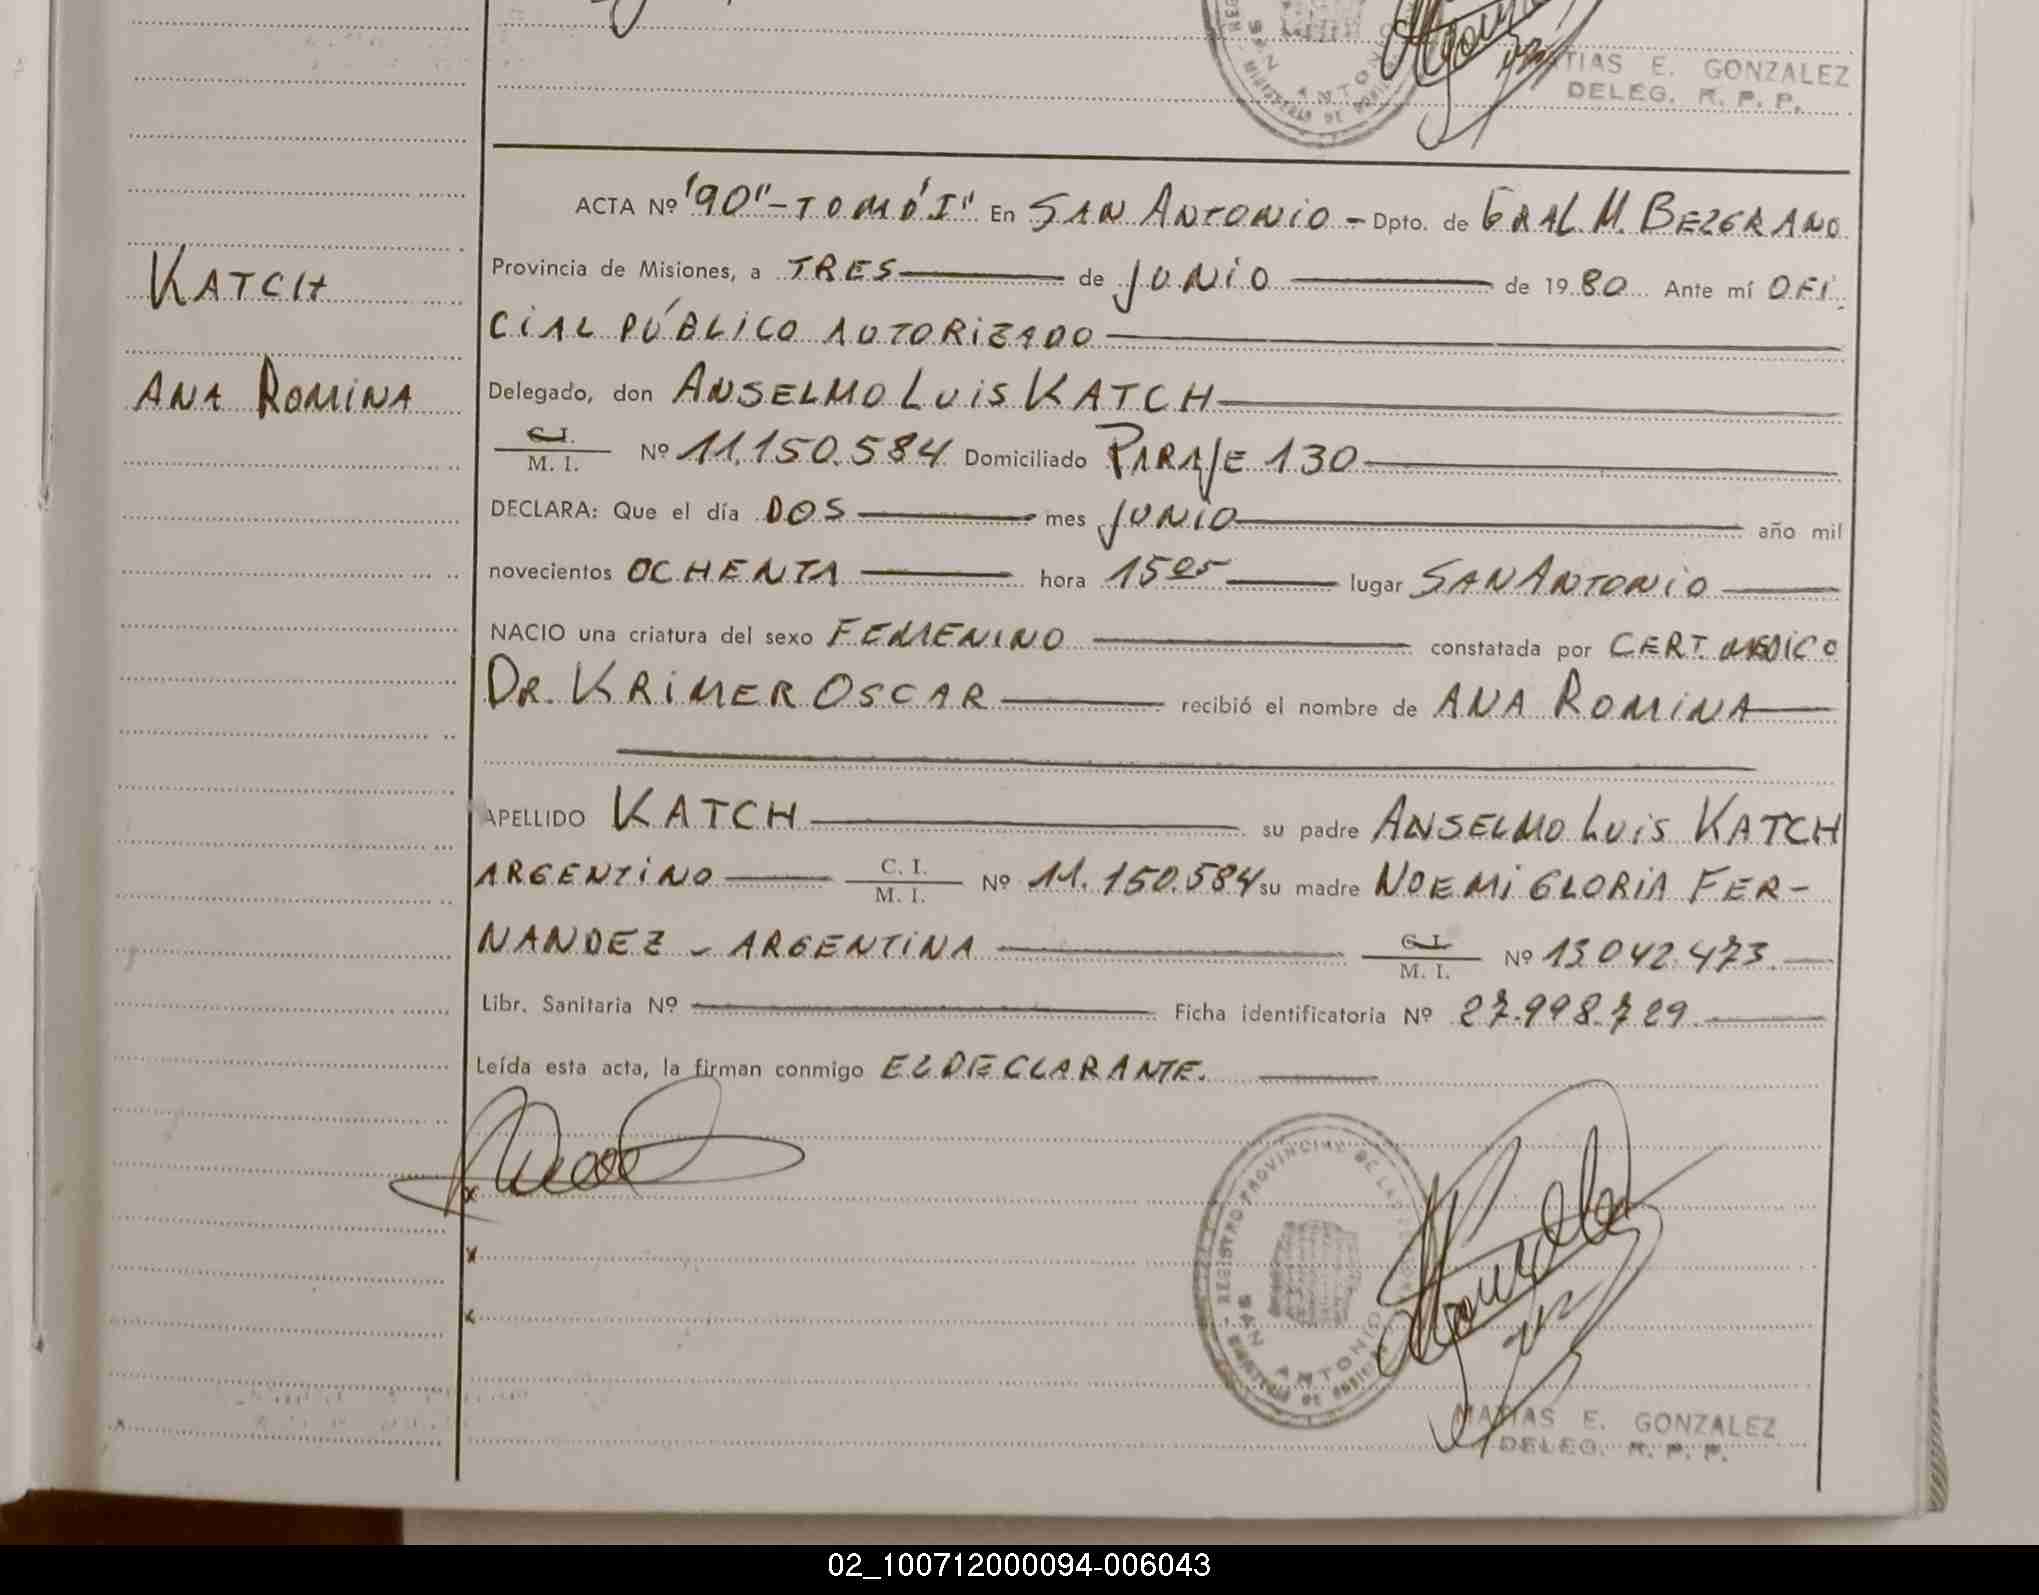 MATIAS E. GONZALEZ
DELEG. R. P. P.
KATCH
ANA ROMINA
ACTA Nº "90"-TOMO "I" En SAN ANTONIO - Dpto. de GRAL. M. BELGRANO
Provincia de Misiones, a TRES de JUNIO de 1980 Ante mí OFI
CIAL PÚBLICO AUTORIZADO
Delegado, don ANSELMO LUIS KATCH
C. I. / M. I. Nº 11.150.584 Domiciliado PARAJE 130
DECLARA: Que el día DOS mes JUNIO año mil
novecientos OCHENTA hora 15 05 lugar SAN ANTONIO
NACIO una criatura del sexo FEMENINO constatada por CERT. MEDICO
DR. KRIMER OSCAR recibió el nombre de ANA ROMINA
APELLIDO KATCH su padre ANSELMO LUIS KATCH
ARGENTINO C. I. / M. I. Nº 11.150.584 su madre NOEMI GLORIA FER-
NANDEZ - ARGENTINA C. I. / M. I. Nº 13.042.473
Libr. Sanitaria Nº Ficha identificatoria Nº 27.998.729
Leída esta acta, la firman conmigo EL DECLARANTE.
REGISTRO PROVINCIAL DE LAS
SAN ANTONIO
MATIAS E. GONZALEZ
DELEG. R. P. P.
02_100712000094-006043